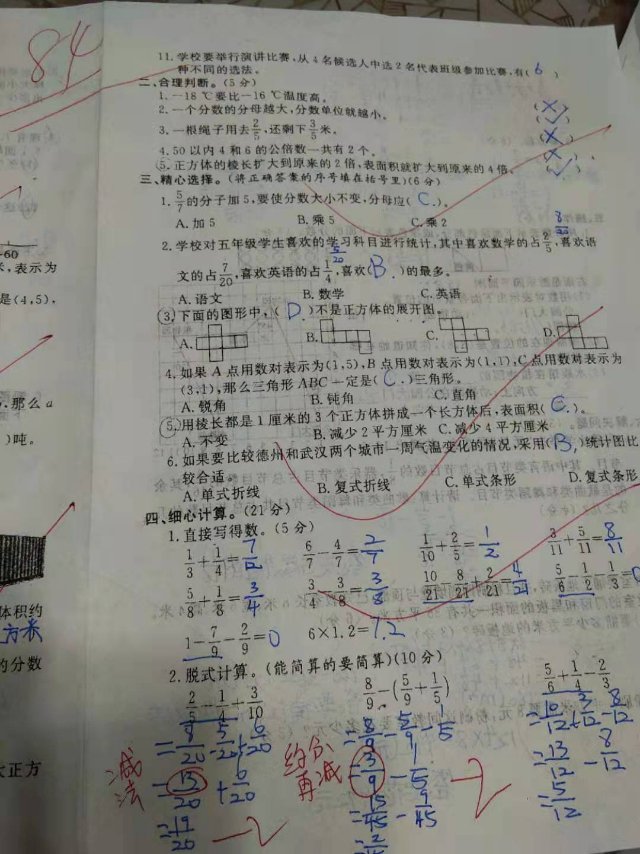 84
11. 学校要举行演讲比赛,从4名候选人中选2名代表班级参加比赛,有( 6 )
种不同的选法。
二、合理判断。(5分)
1. -18℃要比-16℃温度高。 (×)
2. 一个分数的分母越大,分数单位就越小。 (✓)
3. 一根绳子用去2/5,还剩下3/5米。 (×)
4. 50以内4和6的公倍数一共有2个。 (×)
5. 正方体的棱长扩大到原来的2倍,表面积就扩大到原来的4倍。 (✓)
三、精心选择。(将正确答案的序号填在括号里)(6分)
1. 5/7的分子加5,要使分数大小不变,分母应( C )。
A. 加5 B. 乘5 C. 乘2
8/20
2. 学校对五年级学生喜欢的学习科目进行统计,其中喜欢数学的占2/5,喜欢语
5/20
文的占7/20,喜欢英语的占1/4,喜欢( B )的最多。
A. 语文 B. 数学 C. 英语
3. 下面的图形中,( D )不是正方体的展开图。
A. B. C. D.
4. 如果A点用数对表示为(1,5),B点用数对表示为(1,1),C点用数对表示为
(3,1),那么三角形ABC一定是( C )三角形。
A. 锐角 B. 钝角 C. 直角
5. 用棱长都是1厘米的3个正方体拼成一个长方体后,表面积( C )。
A. 不变 B. 减少2平方厘米 C. 减少4平方厘米
6. 如果要比较德州和武汉两个城市一周气温变化的情况,采用( B )统计图比
较合适。
A. 单式折线 B. 复式折线 C. 单式条形 D. 复式条形
四、细心计算。(21分)
1. 直接写得数。(5分)
1/3+1/4=7/12 6/7-4/7=2/7 1/10+2/5=1/2 3/11+5/11=8/11
5/8+1/8=3/4 3/4-3/8=3/8 10/21-8/21+2/21=4/21 5/6-1/2-1/3=0
1-7/9-2/9=0 6×1.2=7.2
2. 脱式计算。(能简算的要简算)(10分)
2/5-1/4+3/10 8/9-(5/9+1/5) 5/6+1/4-2/3
=8/20-5/20+6/20 =8/9-5/9-1/5 =10/12+3/12-8/12
=13/20+6/20 =3/9-1/5 =13/12-8/12
=19/20 =15/45-9/45 =5/12
减法
约分再减
-2
-2
-60
米,表示为
是(4,5),
,那么a
)吨。
体积约
方米
的分数
大正方